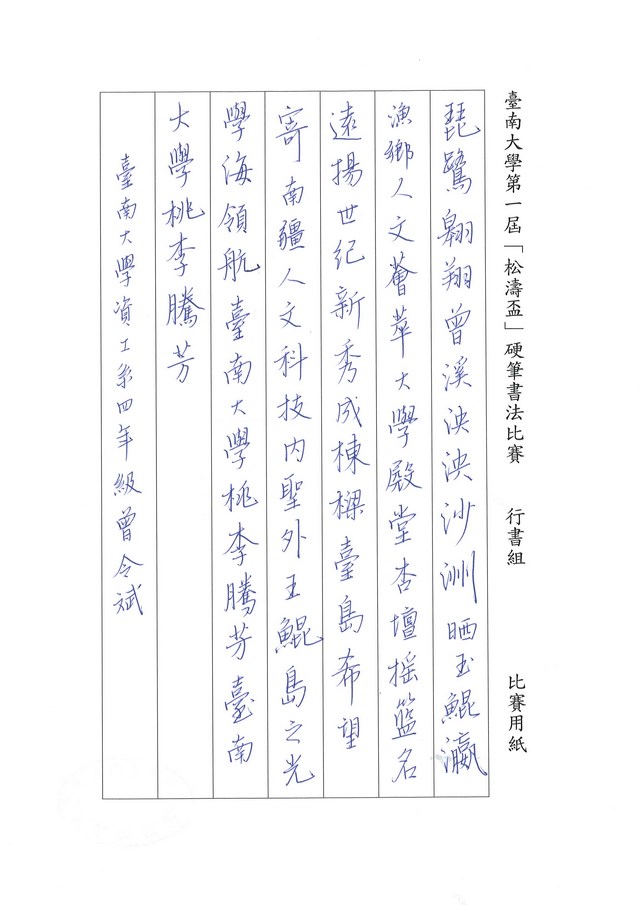 臺南大學第一屆「松濤盃」硬筆書法比賽　行書組　比賽用紙
琵鷺翱翔曾溪泱泱沙洲晒玉鯤瀛
漁鄉人文薈萃大學殿堂杏壇搖籃名
遠揚世紀新秀成棟樑臺島希望
寄南疆人文科技内聖外王鯤島之光
學海領航臺南大學桃李騰芳臺南
大學桃李騰芳
臺南大學資工系四年級曾令斌